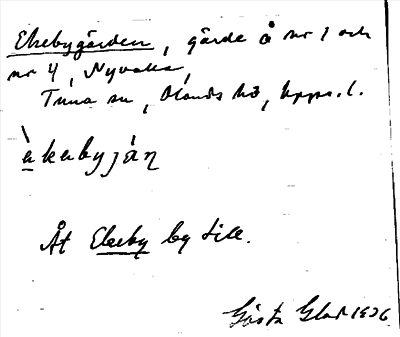 Ekebygärden, gärde å nr 1 och
nr 4, Nyvalla,
Tuna sn, Olands hd, Upps. l.
èkabyján
Åt Ekeby by till.
Gösta Glad 1926